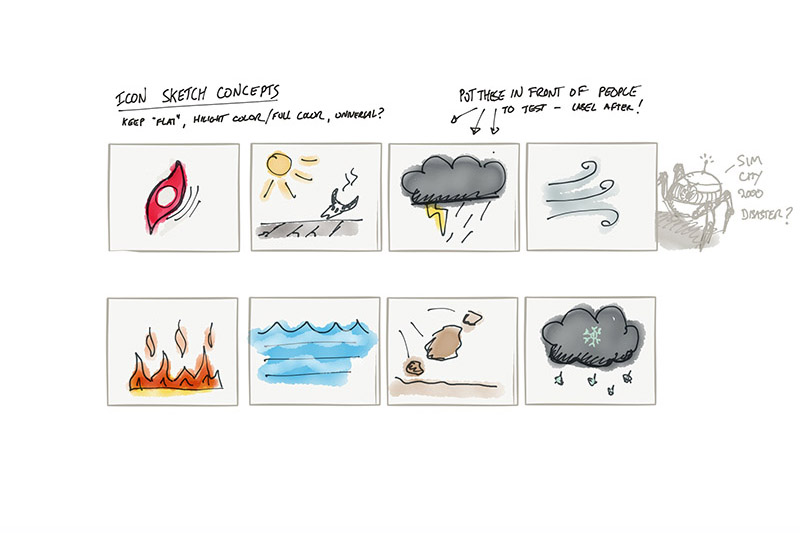 ICON SKETCH CONCEPTS
KEEP "FLAT", HILIGHT COLOR/FULL COLOR, UNIVERSAL?
PUT THESE IN FRONT OF PEOPLE
TO TEST - LABEL AFTER!
SIM
CITY
2000
DISASTER?